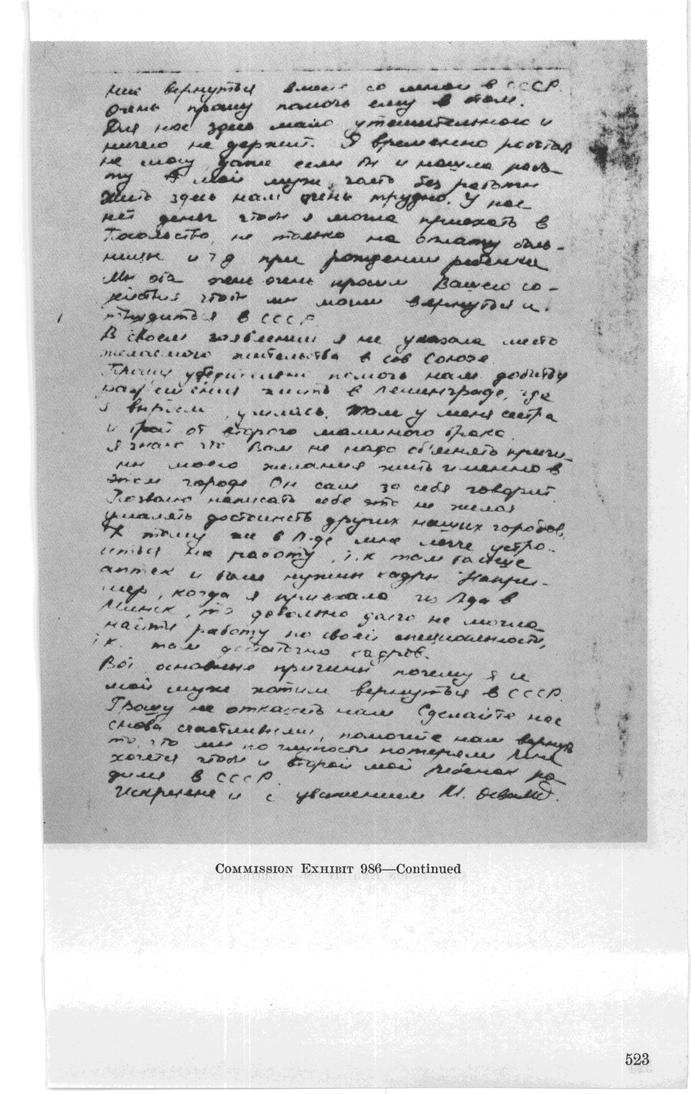 ние вернуться вместе со мной в СССР.
Очень прошу помочь ему в этом.
Для нас здесь мало утешительного и
ничего не держит. Я временно работать
не могу, даже если бы и нашла рабо-
ту. А мой муж часто без работы
Жить здесь нам очень трудно. У нас
нет денег чтобы я могла приехать в
Посольство, не только на оплату боль-
ницы и т д при рождении ребенка
Мы оба очень очень просим Вашего со-
действия чтобы мы могли вернуться и
трудиться в СССР
В своем заявлении я не указала место
желаемого жительства в Сов Союзе
Прошу убедительно помочь нам добиться
разрешения жить в Ленинграде, где
я выросла, училась. Там у меня сестра
и брат от второго маминого брака.
Я знаю что Вам не надо объяснять причи-
ны моего желания жить именно в
этом городе Он сам за себя говорит.
Позволю написать себе это не желая
умалять достоинств других наших городов.
К тому же в Л-де мне легче устро-
иться на работу, т.к там больше
аптек и более нужны кадры. Напри-
мер, когда я приехала из Л-да в
Минск, то довольно долго не могла
найти работу по своей специальности,
т.к. там достаточно кадров.
Вот основные причины почему я и
мой муж хотим вернуться в СССР
Прошу не отказать нам Сделайте нас
снова счастливыми, помогите нам вернуть
то, что мы по глупости потеряли Мне
хочется чтобы и второй мой ребенок ро-
дился в СССР
Искренне и с уважением М. Освальд.
COMMISSION EXHIBIT 986—Continued
523